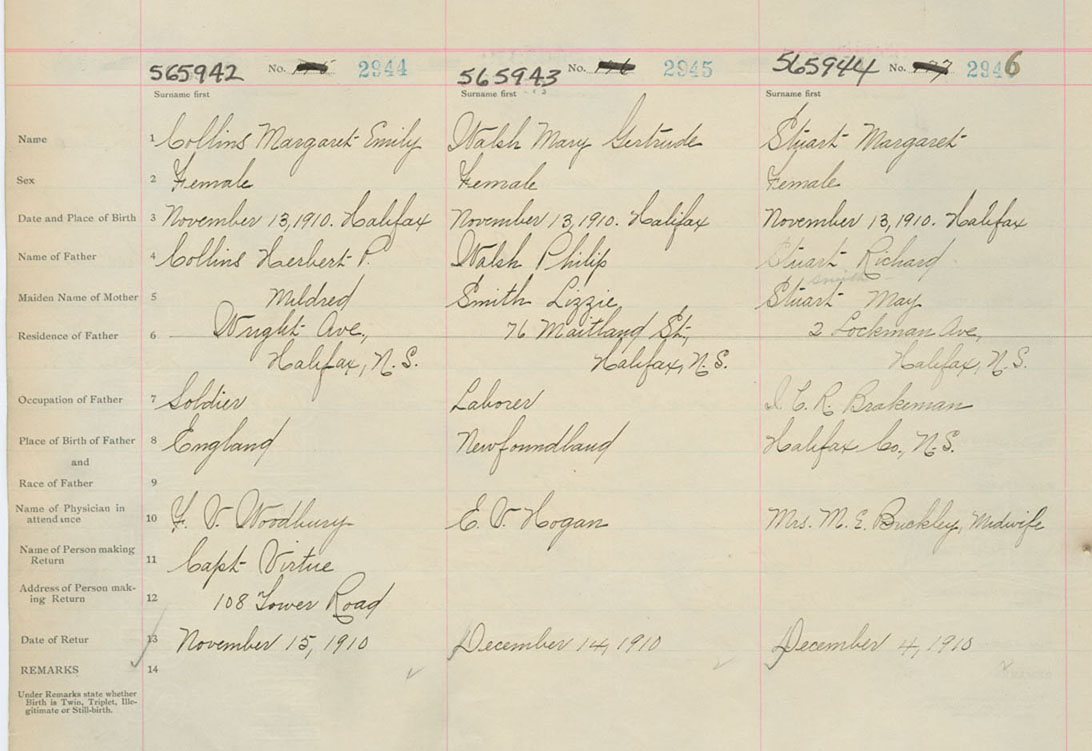 565942 No. 2944 565943 No. 2945 565944 No. 2946
Surname first Surname first Surname first
Name 1 Collins Margaret Emily Walsh Mary Gertrude Stuart Margaret
Sex 2 Female Female Female
Date and Place of Birth 3 November 13, 1910. Halifax November 13, 1910. Halifax November 13, 1910. Halifax
Name of Father 4 Collins Herbert P. Walsh Philip Stuart Richard
Maiden Name of Mother 5 Mildred Smith Lizzie Stuart May
Residence of Father 6 Wright Ave., 76 Maitland St., 2 Lockman Ave,
Halifax, N.S. Halifax, N.S. Halifax, N.S.
Occupation of Father 7 Soldier Laborer I.C.R. Brakeman
Place of Birth of Father 8 England Newfoundland Halifax Co., N.S.
and
Race of Father 9
Name of Physician in
attendance 10 F. V. Woodbury E. V. Hogan Mrs. M. E. Buckley, Midwife
Name of Person making
Return 11 Capt Virtue
Address of Person mak-
ing Return 12 108 Tower Road
Date of Retur 13 November 15, 1910 December 14, 1910 December 4, 1910
REMARKS 14
Under Remarks state whether
Birth is Twin, Triplet, Ille-
gitimate or Still-birth.